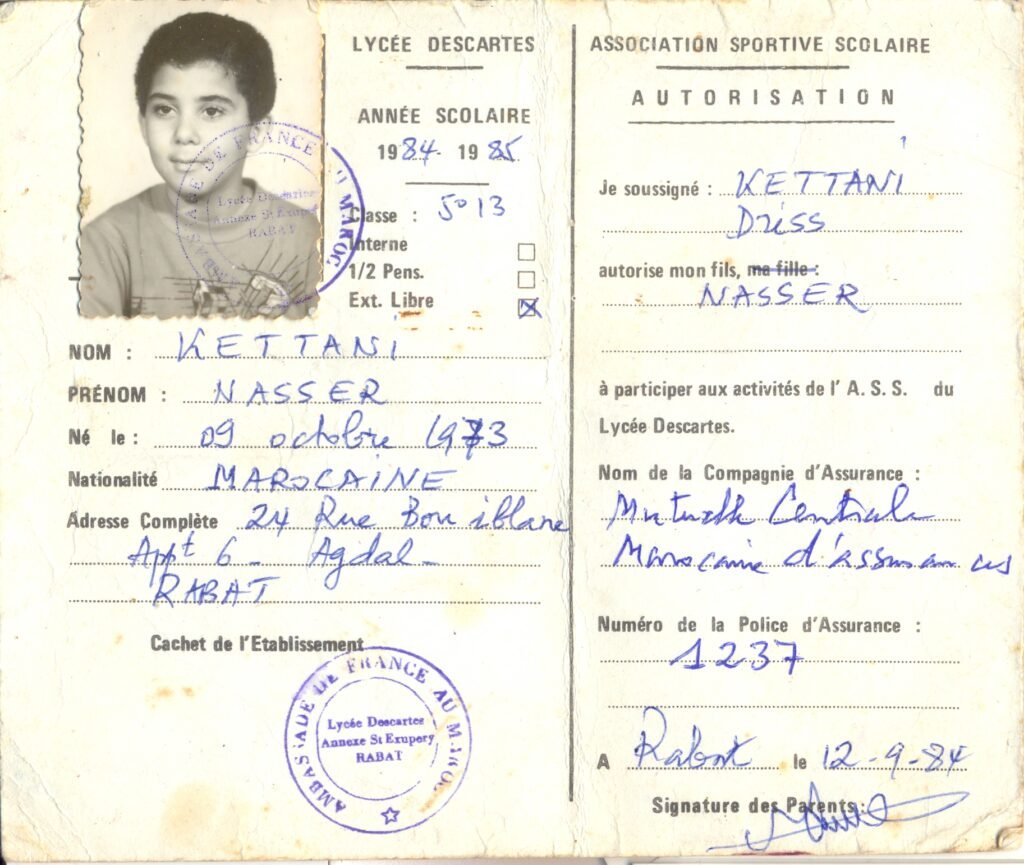 LYCÉE DESCARTES
ANNÉE SCOLAIRE
1984 1985
Classe : 5° 13
Interne
1/2 Pens.
Ext. Libre
AMBASSADE DE FRANCE AU MAROC
Lycée Descartes
Annexe St Exupery
RABAT
NOM : KETTANI
PRÉNOM : NASSER
Né le : 09 octobre 1973
Nationalité MAROCAINE
Adresse Complète 24 Rue Bou iblane
Appt 6 - Agdal -
RABAT
Cachet de l'Etablissement
AMBASSADE DE FRANCE AU MAROC
Lycée Descartes
Annexe St Exupery
RABAT
ASSOCIATION SPORTIVE SCOLAIRE
AUTORISATION
Je soussigné : KETTANI
Driss
autorise mon fils, ma fille :
NASSER
à participer aux activités de l' A. S. S. du
Lycée Descartes.
Nom de la Compagnie d'Assurance :
Mutuelle Centrale
Marocaine d'assurances
Numéro de la Police d'Assurance :
1237
A Rabat le 12-9-84
Signature des Parents :